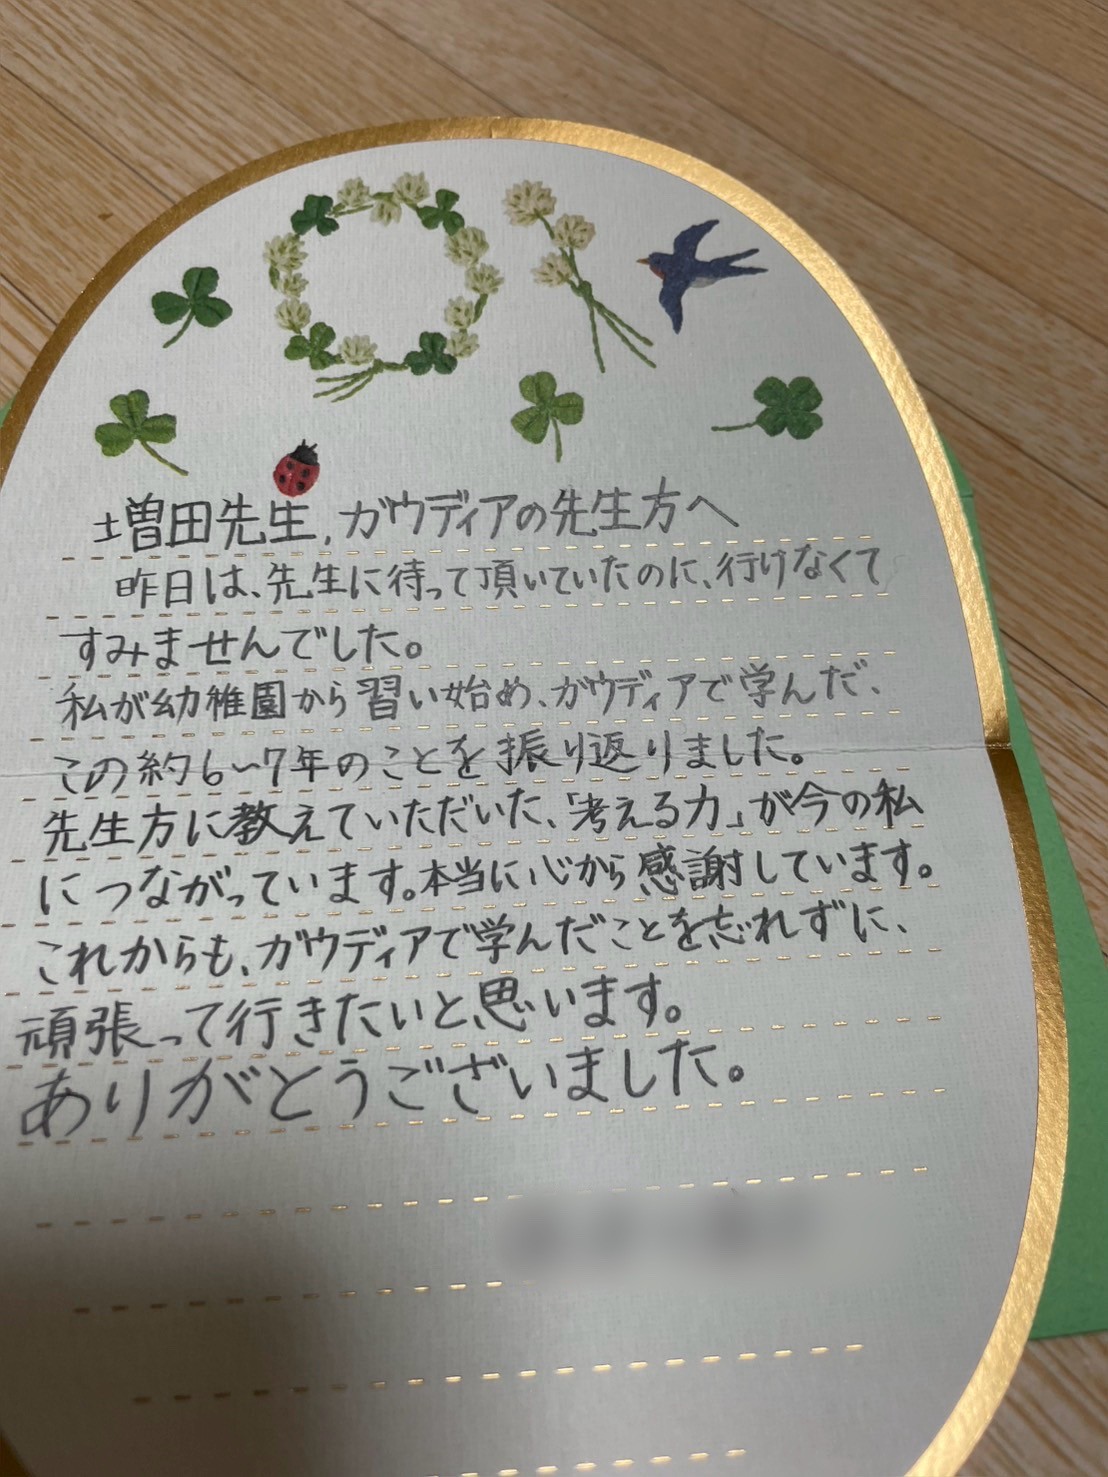 増田先生,ガウディアの先生方へ
昨日は、先生に待って頂いていたのに、行けなくて
すみませんでした。
私が幼稚園から習い始め、ガウディアで学んだ、
この約6〜7年のことを振り返りました。
先生方に教えていただいた、「考える力」が今の私
につながっています。本当に心から感謝しています。
これからも、ガウディアで学んだことを忘れずに、
頑張って行きたいと思います。
ありがとうございました。